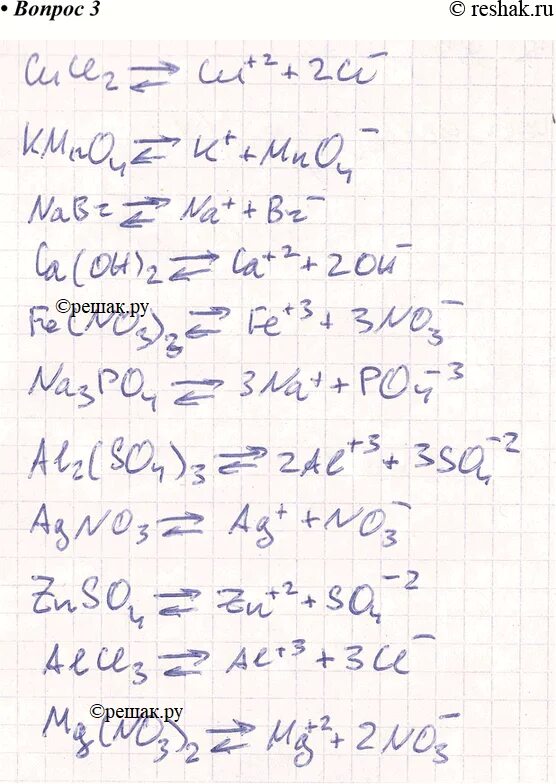 • Вопрос 3
© reshak.ru
CuCl₂ ⇄ Cu⁺² + 2Cl⁻
KMnO₄ ⇄ K⁺ + MnO₄⁻
NaBr ⇄ Na⁺ + Br⁻
Ca(OH)₂ ⇄ Ca⁺² + 2OH⁻
©решак.ру
Fe(NO₃)₃ ⇄ Fe⁺³ + 3NO₃⁻
Na₃PO₄ ⇄ 3Na⁺ + PO₄⁻³
Al₂(SO₄)₃ ⇄ 2Al⁺³ + 3SO₄⁻²
AgNO₃ ⇄ Ag⁺ + NO₃⁻
ZnSO₄ ⇄ Zn⁺² + SO₄⁻²
AlCl₃ ⇄ Al⁺³ + 3Cl⁻
©решак.ру
Mg(NO₃)₂ ⇄ Mg⁺² + 2NO₃⁻